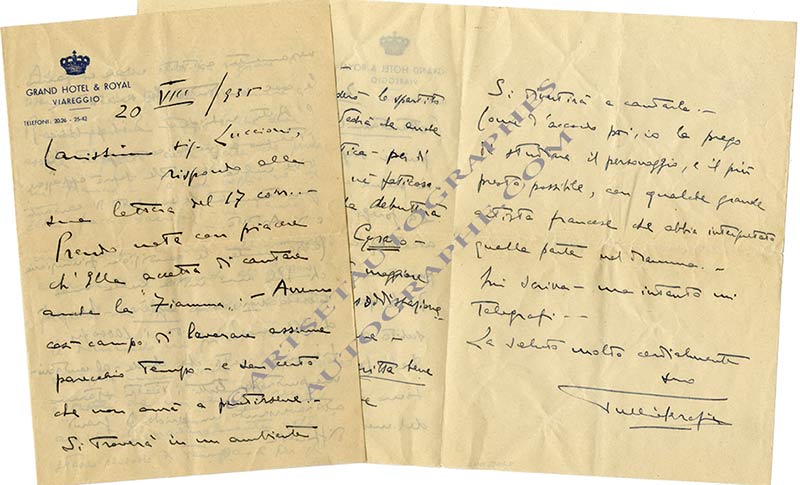 GRAND HOTEL & ROYAL
VIAREGGIO
TELEFONI: 20-26 - 25-42
20 VIII /935
Carissimo sig. Luccioni,
rispondo alla
sua lettera del 17 corr. -
Prendo nota con piacere
ch'Ella accetta di cantare
anche la "Fiamma". - Avremo
così campo di lavorare assieme
parecchio tempo - e son certo
che non avrà a pentirsene. -
Si troverà in un ambiente
GRAND HOTEL & ROYAL
VIAREGGIO
lo spartito
vedrà che anche
tica - per di
né faticosa
debutterà
Cyrano -
maggiore
soddisfazione
scritta bene
Si divertirà a cantarla. -
Come d'accordo poi, io la prego
di studiare il personaggio, e il più
presto possibile, con qualche grande
artista francese che abbia interpretato
quella parte nel dramma. -
Mi scriva - ma intanto mi
telegrafi - -
La saluto molto cordialmente
suo
Tullio Serafin
©ARTSETAUTOGRAPHES
AUTOGRAPHE.COM